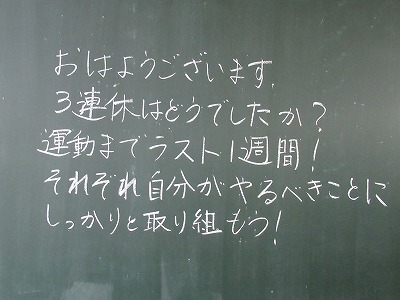 おはようございます.
3連休はどうでしたか?
運動までラスト1週間!
それぞれ自分がやるべきことに
しっかりと取り組もう!